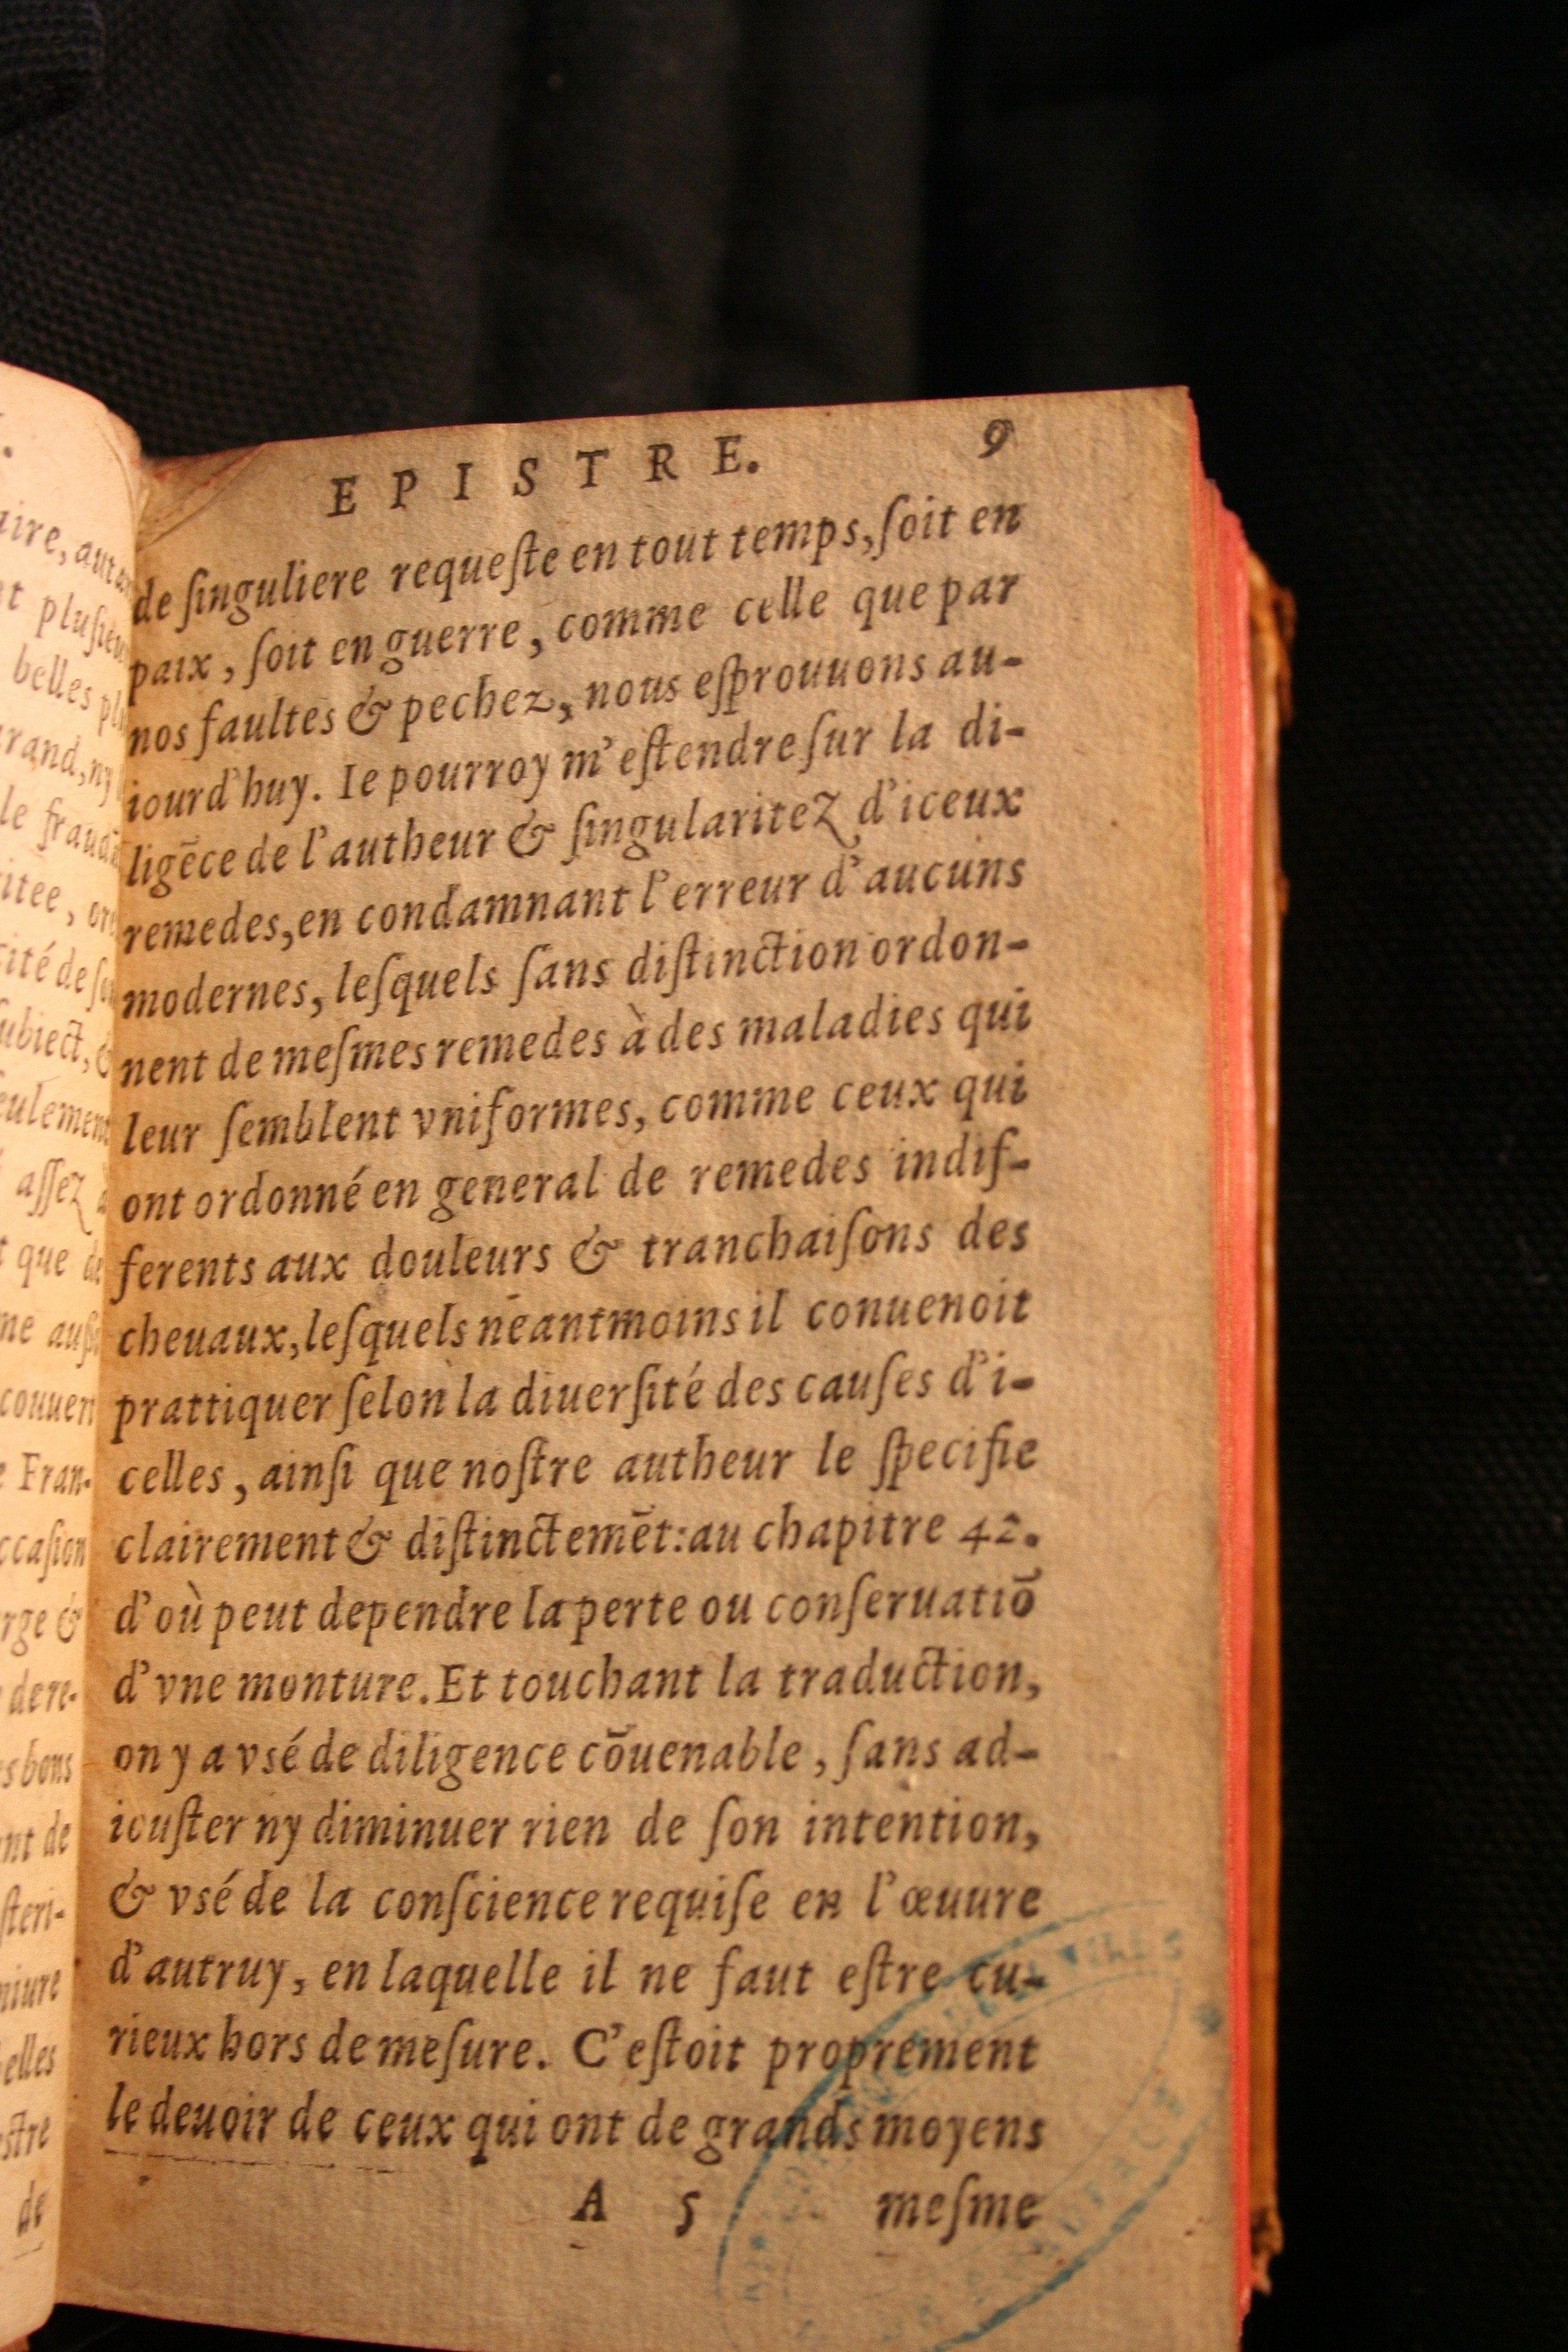 EPISTRE. 9
de ſinguliere requeſte en tout temps, ſoit en
paix, ſoit en guerre, comme celle que par
nos faultes & pechez, nous eſprouuons au-
iourd'huy. Ie pourroy m'eſtendre ſur la di-
ligēce de l'autheur & ſingularitez d'iceux
remedes, en condamnant l'erreur d'aucuns
modernes, leſquels ſans diſtinction ordon-
nent de meſmes remedes à des maladies qui
leur ſemblent vniformes, comme ceux qui
ont ordonné en general de remedes indif-
ferents aux douleurs & tranchaiſons des
cheuaux, leſquels neantmoins il conuenoit
prattiquer ſelon la diuerſité des cauſes d'i-
celles, ainſi que noſtre autheur le ſpecifie
clairement & diſtinctemēt: au chapitre 42.
d'où peut dependre la perte ou conſeruatiō
d'vne monture. Et touchant la traduction,
on y a vsé de diligence cōuenable, ſans ad-
iouſter ny diminuer rien de ſon intention,
& vsé de la conſcience requiſe en l'œuure
d'autruy, en laquelle il ne faut eſtre cu-
rieux hors de meſure. C'eſtoit proprement
le deuoir de ceux qui ont de grands moyens
A 5 meſme